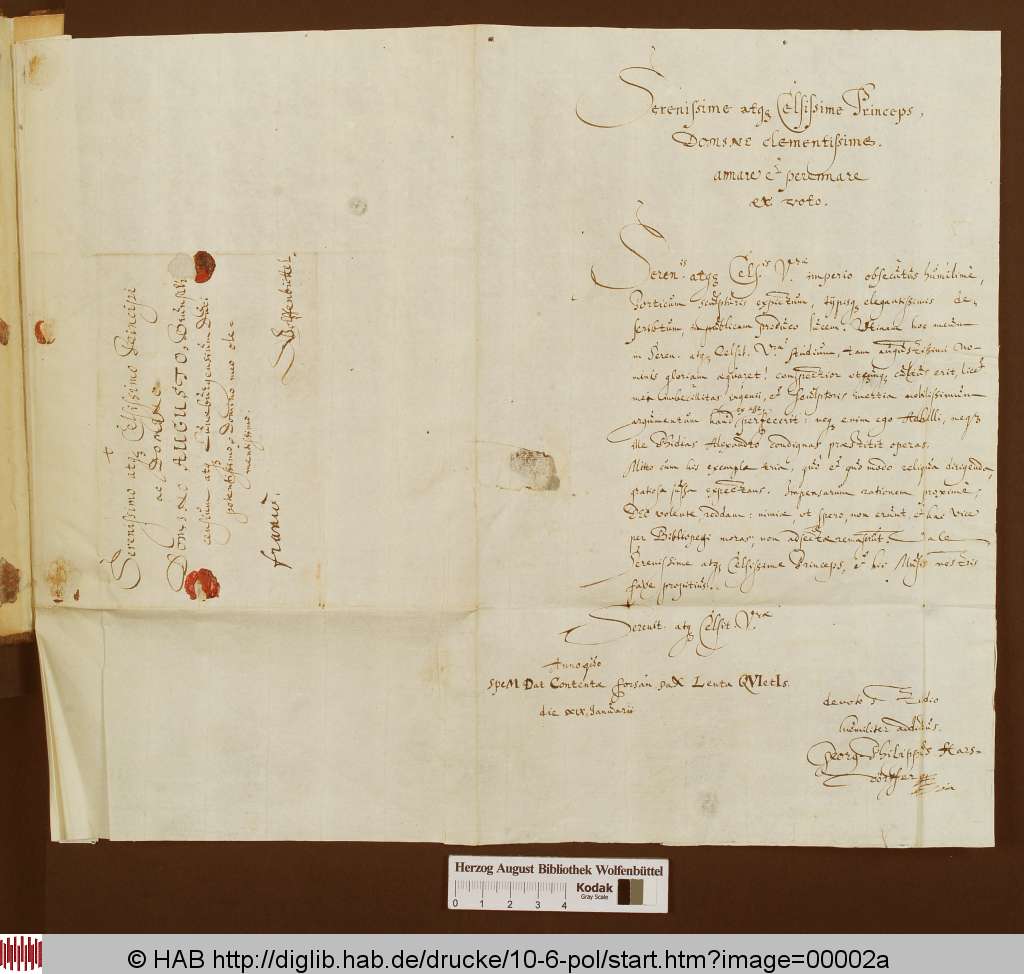 Serenissime atq; Celsissime Princeps,
Domine clementissime.
annare et perennare
ex voto.
Seren.is atq; Cels.is V.rae imperio obsecutus humilime,
Porticum sculpturis expictum, typisq; elegantissimis de-
scriptum, in publicam produco lucem. Utinam hoc meum
in Seren. atq; Celsit. V.rae studium, tam augustissimi no-
minis gloriam aequaret! conspectior utq; erit, licet
mea imbecillitas ingenii, et sculptoris inertia nobilissimum
argumentum haud perfecerit: neq; enim ego neq;
ille Phidias Alexandro condignas praestitit operas.
Mitto cum his exempla tria, quo et quo modo reliqua dirigenda,
gratiosa jussa expectans. Impensarum rationem proxime,
Deo volente, reddam: nimiae, ut spero, non erunt, et hac vice
per Bibliopegi moras, non Vale
Serenissime atq; Celsissime Princeps, et his Musis nostris
fave propitius.
Serenit. atq; Celsit. V.rae
Anno quo
speM Dat Contenta forsan paX Lenta QVIetIs.
die XIX. Januarii
devoto studio
humiliter addictus.
Georg Philippus Hars-
dörffer
Serenissimo atq; Celsissimo Principi
ac Domino
Domino AUGUSTO, Brunsvi
censium atq; Luneburgensium Duci
potentissimo, Domino meo cle-
mentissimo.
franco.
Wolffenbüttel.
Herzog August Bibliothek Wolfenbüttel
0 1 2 3 4
Kodak
Gray Scale
© HAB http://diglib.hab.de/drucke/10-6-pol/start.htm?image=00002a